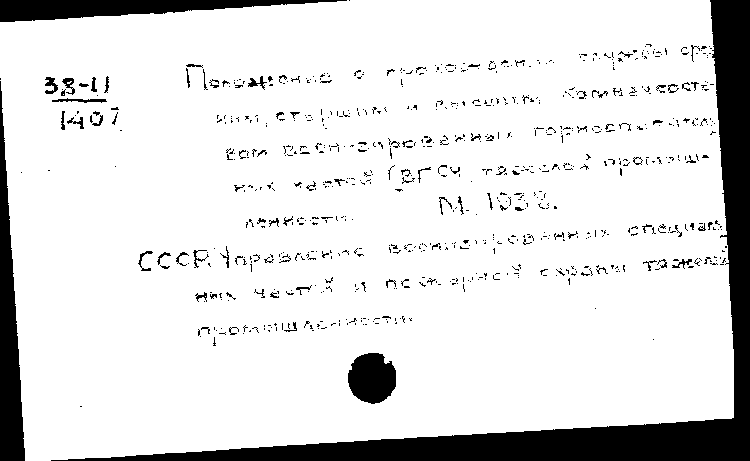 38-11
1407
Положение о прохождении службы сред
ним, старшим и высшим комначсоста
вом военизированных горноспасатель
ных частей (ВГСЧ) тяжелой промыш-
ленности. М. 1938.
СССР. Управление военизированных специаль
ных частей и пожарной охраны тяжелой
промышленности.